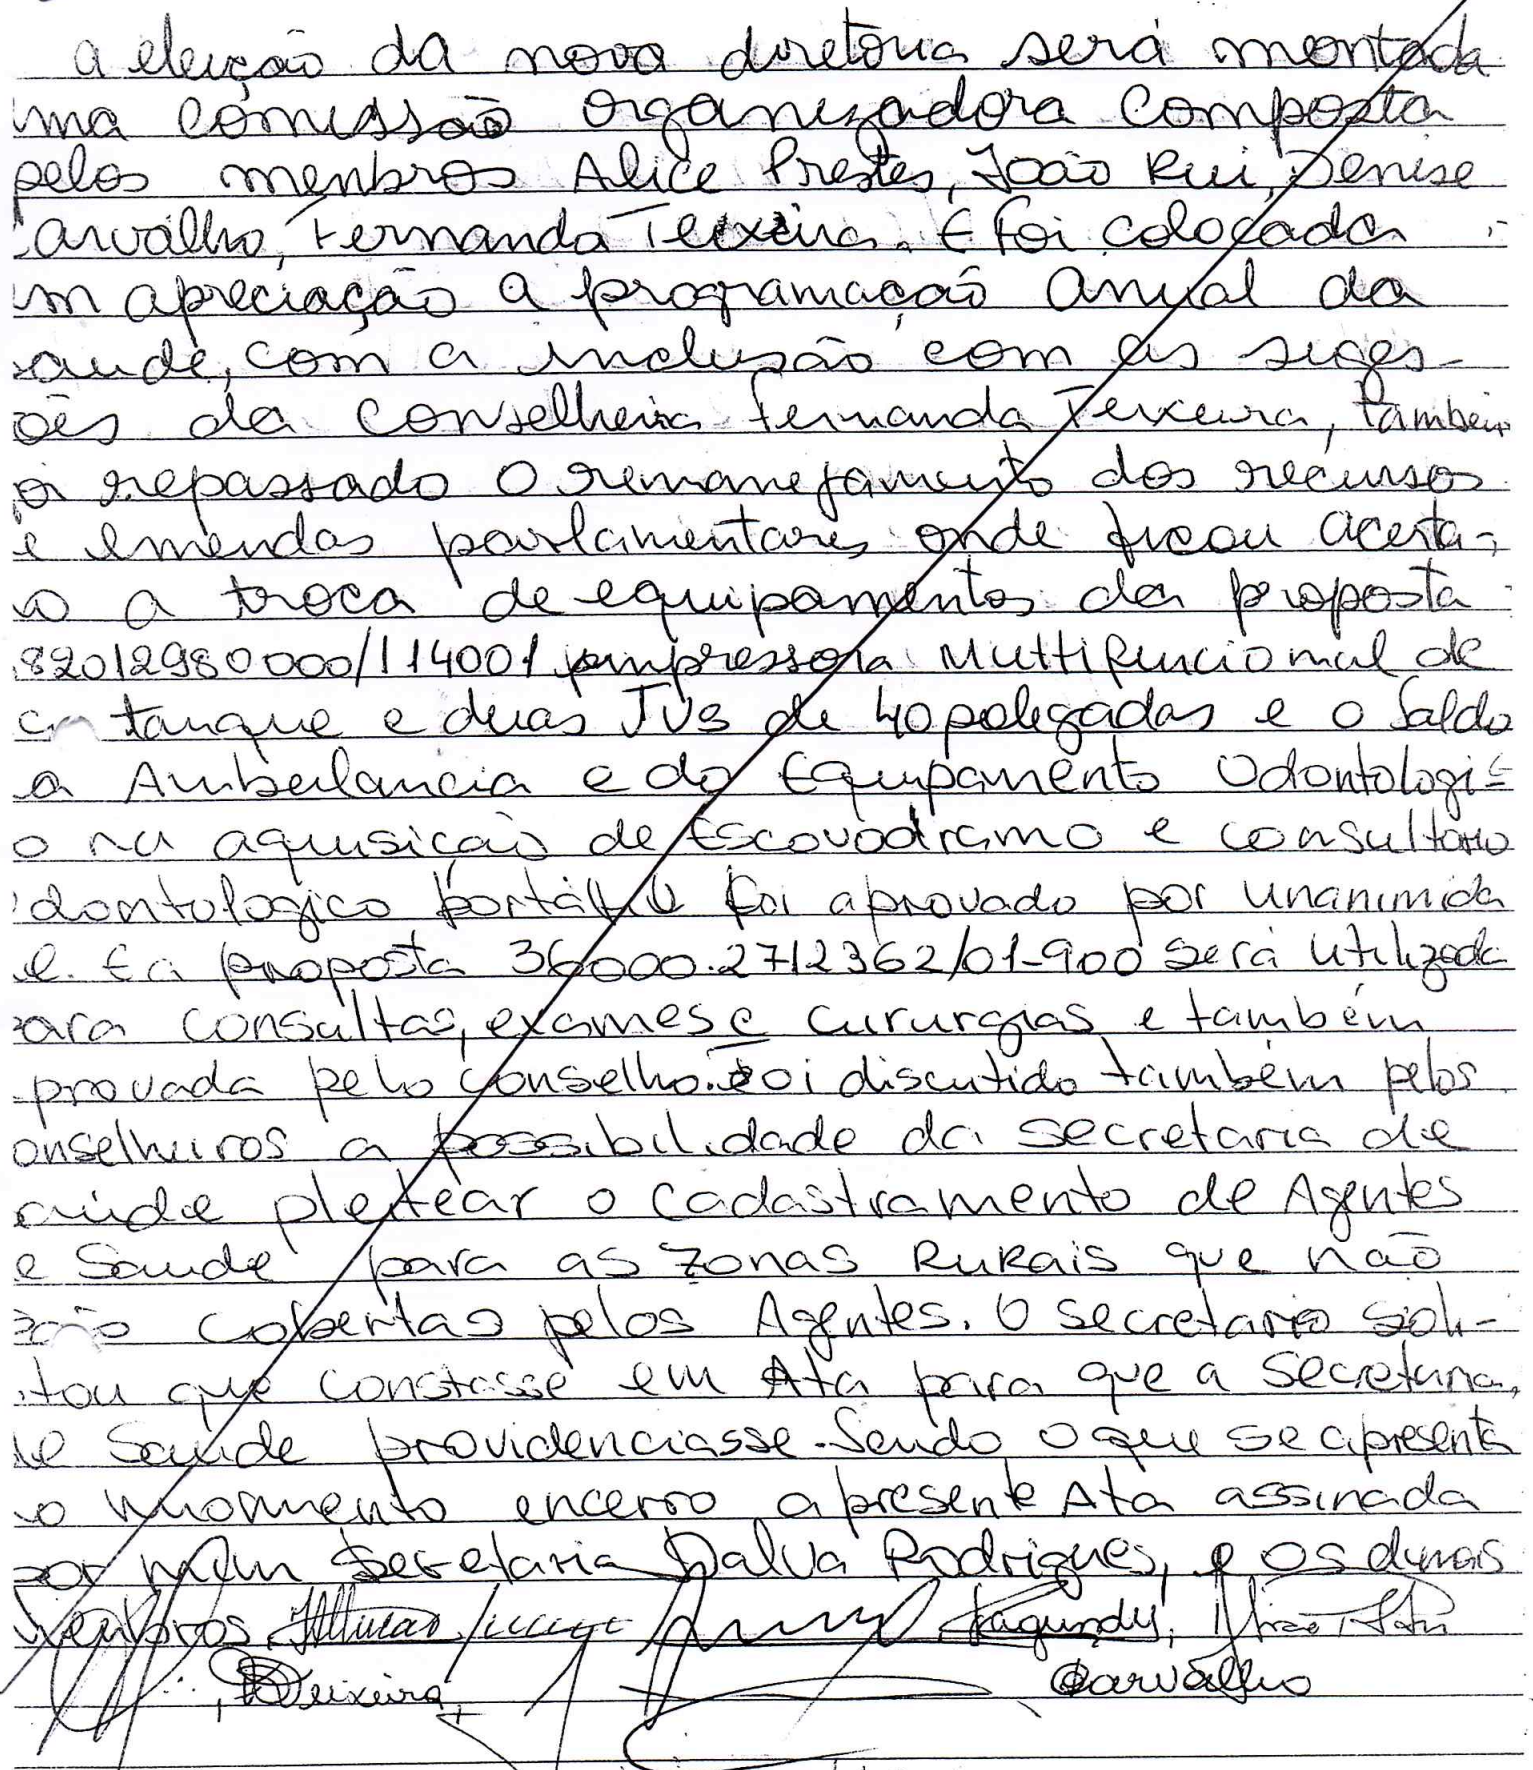 a eleição da nova diretoria será montada
ma comissão organizadora composta
pelos menbros Alice Prestes, João Rui, Denise
arvalho, Fernanda Teixeira. E foi colocada
m apreciação a programação anual da
aude, com a inclusão com as suges-
ões da Conselheira Fernanda Teixeira, também
oi repassado o remanejamento dos recursos
e emendas parlamentares onde ficou acerta-
o a troca de equipamentos da proposta
82012980000/114001 impressora Multifuncional de
tanque e duas TVs de 40 polegadas e o Saldo
a Ambulancia e do Equipamento Odontologi-
o na aquisição de Escovodramo e consultorio
dontologico portátil foi aprovado por unanimida
e. E a proposta 36000.2712362/01-900 será utilizada
para consultas, exames e cirurgias e também
provada pelo conselho. Foi discutido também pelos
onselheiros a possibilidade da secretaria de
aúde pleitear o cadastramento de Agentes
e Saude para as zonas Rurais que não
são cobertas pelos Agentes. O secretario soli-
itou que constasse em Ata para que a Secretaria,
de Saúde providenciasse. Sendo o que se apresenta
o momento encerro a presente Ata assinada
por mim Secretaria Dalva Rodrigues, e os demais
Menbros, Fagundes,
Teixeira, Carvalho